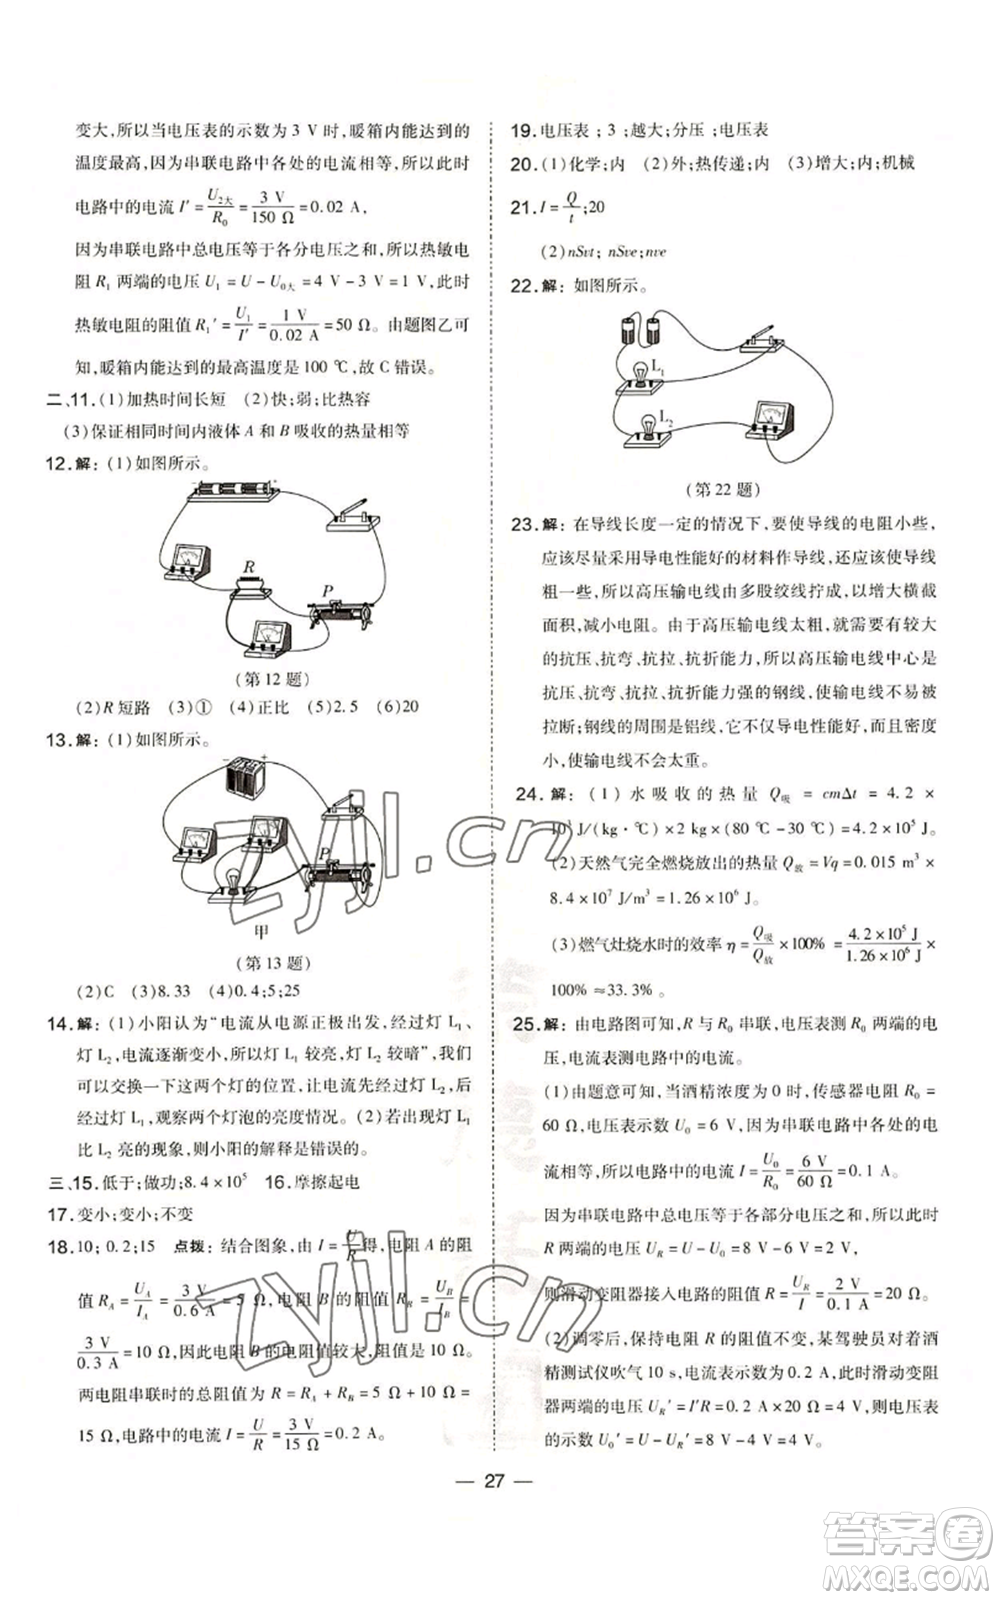 变大,所以当电压表的示数为 3 V 时,暖箱内能达到的
温度最高,因为串联电路中各处的电流相等,所以此时
电路中的电流 I′ = U₂大/R₀ = 3 V/150 Ω = 0.02 A,
因为串联电路中总电压等于各分电压之和,所以热敏电
阻 R₁ 两端的电压 U₁ = U - U₀大 = 4 V - 3 V = 1 V,此时
热敏电阻的阻值 R₁′ = U₁/I′ = 1 V/0.02 A = 50 Ω。由题图乙可
知,暖箱内能达到的最高温度是 100 ℃,故 C 错误。
二、11. (1)加热时间长短 (2)快;弱;比热容
(3)保证相同时间内液体 A 和 B 吸收的热量相等
12. 解:(1)如图所示。
R
P
(第 12 题)
(2)R 短路 (3)① (4)正比 (5)2.5 (6)20
13. 解:(1)如图所示。
P
甲
(第 13 题)
(2)C (3)8.33 (4)0.4;5;25
14. 解:(1)小阳认为“电流从电源正极出发,经过灯 L₁、
灯 L₂,电流逐渐变小,所以灯 L₁ 较亮,灯 L₂ 较暗”,我们
可以交换一下这两个灯的位置,让电流先经过灯 L₂,后
经过灯 L₁,观察两个灯泡的亮度情况。(2)若出现灯 L₁
比 L₂ 亮的现象,则小阳的解释是错误的。
三、15. 低于;做功;8.4×10⁵ 16. 摩擦起电
17. 变小;变小;不变
18. 10;0.2;15 点拨:结合图象,由 I = U/R 得,电阻 A 的阻
值 R_A = U_A/I_A = 3 V/0.6 A = 5 Ω,电阻 B 的阻值 R_B = U_B/I_B =
3 V/0.3 A = 10 Ω,因此电阻 B 的阻值较大,是 10 Ω。
两电阻串联时的总阻值 R = R_A + R_B = 5 Ω + 10 Ω =
15 Ω,电路中的电流 I = U/R = 3 V/15 Ω = 0.2 A。
19. 电压表;3;越大;分压;电压表
20. (1)化学;内 (2)外;热传递;内 (3)增大;内;机械
21. I = Q/t;20
(2)nSvt;nSve;nve
22. 解:如图所示。
L₁
L₂
(第 22 题)
23. 解:在导线长度一定的情况下,要使导线的电阻小些,
应该尽量采用导电性能好的材料作导线,还应该使导线
粗一些,所以高压输电线由多股绞线拧成,以增大横截
面积,减小电阻。由于高压输电线太粗,就必须有较大
的抗压、抗弯、抗拉、抗折能力,所以高压输电线中心是
抗压、抗弯、抗拉、抗折性能力强的钢线,使导线不易被
拉断;钢线的周围是铝线,它不仅导电性能好,而且密度
小,使输电线不会太重。
24. 解:(1)水吸收的热量 Q吸 = cmΔt = 4.2 ×
10³ J/(kg·℃)×2 kg×(80 ℃-30 ℃)= 4.2×10⁵ J。
(2)天然气完全燃烧放出的热量 Q放 = Vq = 0.015 m³ ×
8.4×10⁷ J/m³ = 1.26×10⁶ J。
(3)燃气灶烧水时的效率 η = Q吸/Q放 × 100% = 4.2×10⁵ J/1.26×10⁶ J ×
100% ≈ 33.3%。
25. 解:由电路图可知,R 与 R₀ 串联,电压表测 R₀ 两端的电
压,电流表测电路中的电流。
(1)由题意可知,当酒精浓度为 0 时,传感器电阻 R₀ =
60 Ω,电压表示数为 U₀ = 6 V,因为串联电路中各处电
流相等,所以电路中的电流 I = U₀/R₀ = 6 V/60 Ω = 0.1 A。
因为串联电路中总电压等于各部分电压之和,所以
R 两端的电压 U_R = U - U₀ = 8 V - 6 V = 2 V,
则滑动变阻器接入电路的电阻 R = U_R/I = 2 V/0.1 A = 20 Ω。
(2)调零后,保持电阻 R 的阻值不变,某驾驶员对着酒
精测试仪吹气 10 s,电流表示数为 0.2 A,此时滑动变阻
器两端的电压 U_R′ = I′R = 0.2 A×20 Ω = 4 V,电压表
的示数 U₀′ = U - U_R′ = 8 V - 4 V = 4 V。
— 27 —
zyjl.cn
zyjl.cn
答案卷
MXQE.COM